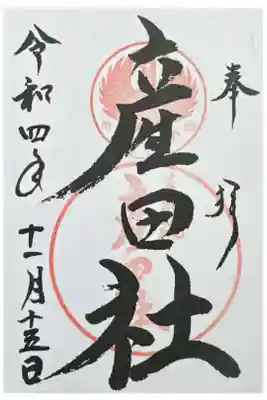 奉拝
産田社
令和四年
十一月十五日